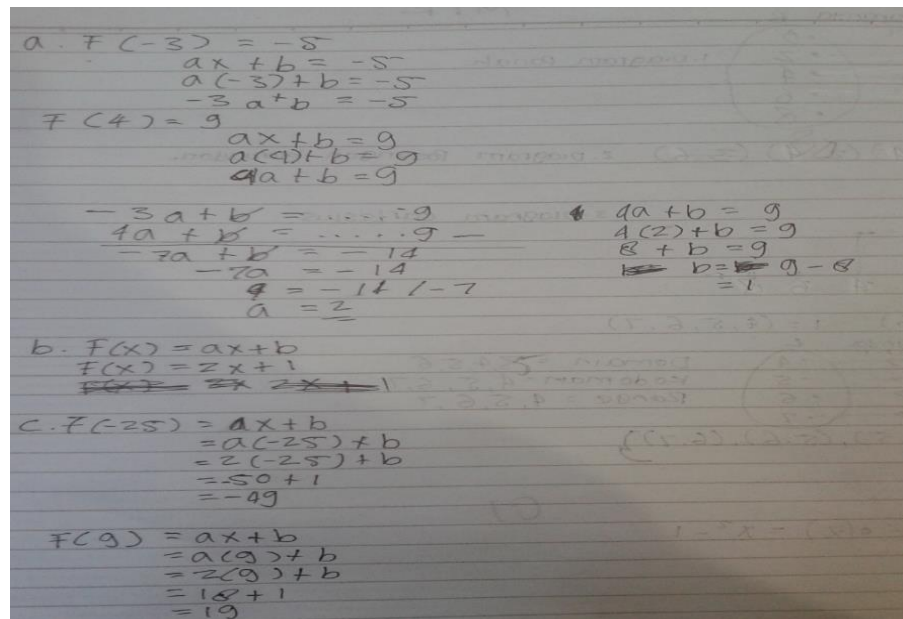 a. F(-3) = -5
ax + b = -5
a(-3) + b = -5
-3a + b = -5
F(4) = 9
ax + b = 9
a(4) + b = 9
4a + b = 9
-3a + b = .....9
4a + b = .....9 -
-7a + b = -14
-7a = -14
a = -14 / -7
a = 2
4a + b = 9
4(2) + b = 9
8 + b = 9
b = 9 - 8
= 1
b. F(x) = ax + b
F(x) = 2x + 1
F(x) = 2x 2x + 1
c. F(-25) = ax + b
= a(-25) + b
= 2(-25) + b
= -50 + 1
= -49
F(9) = ax + b
= a(9) + b
= 2(9) + b
= 18 + 1
= 19